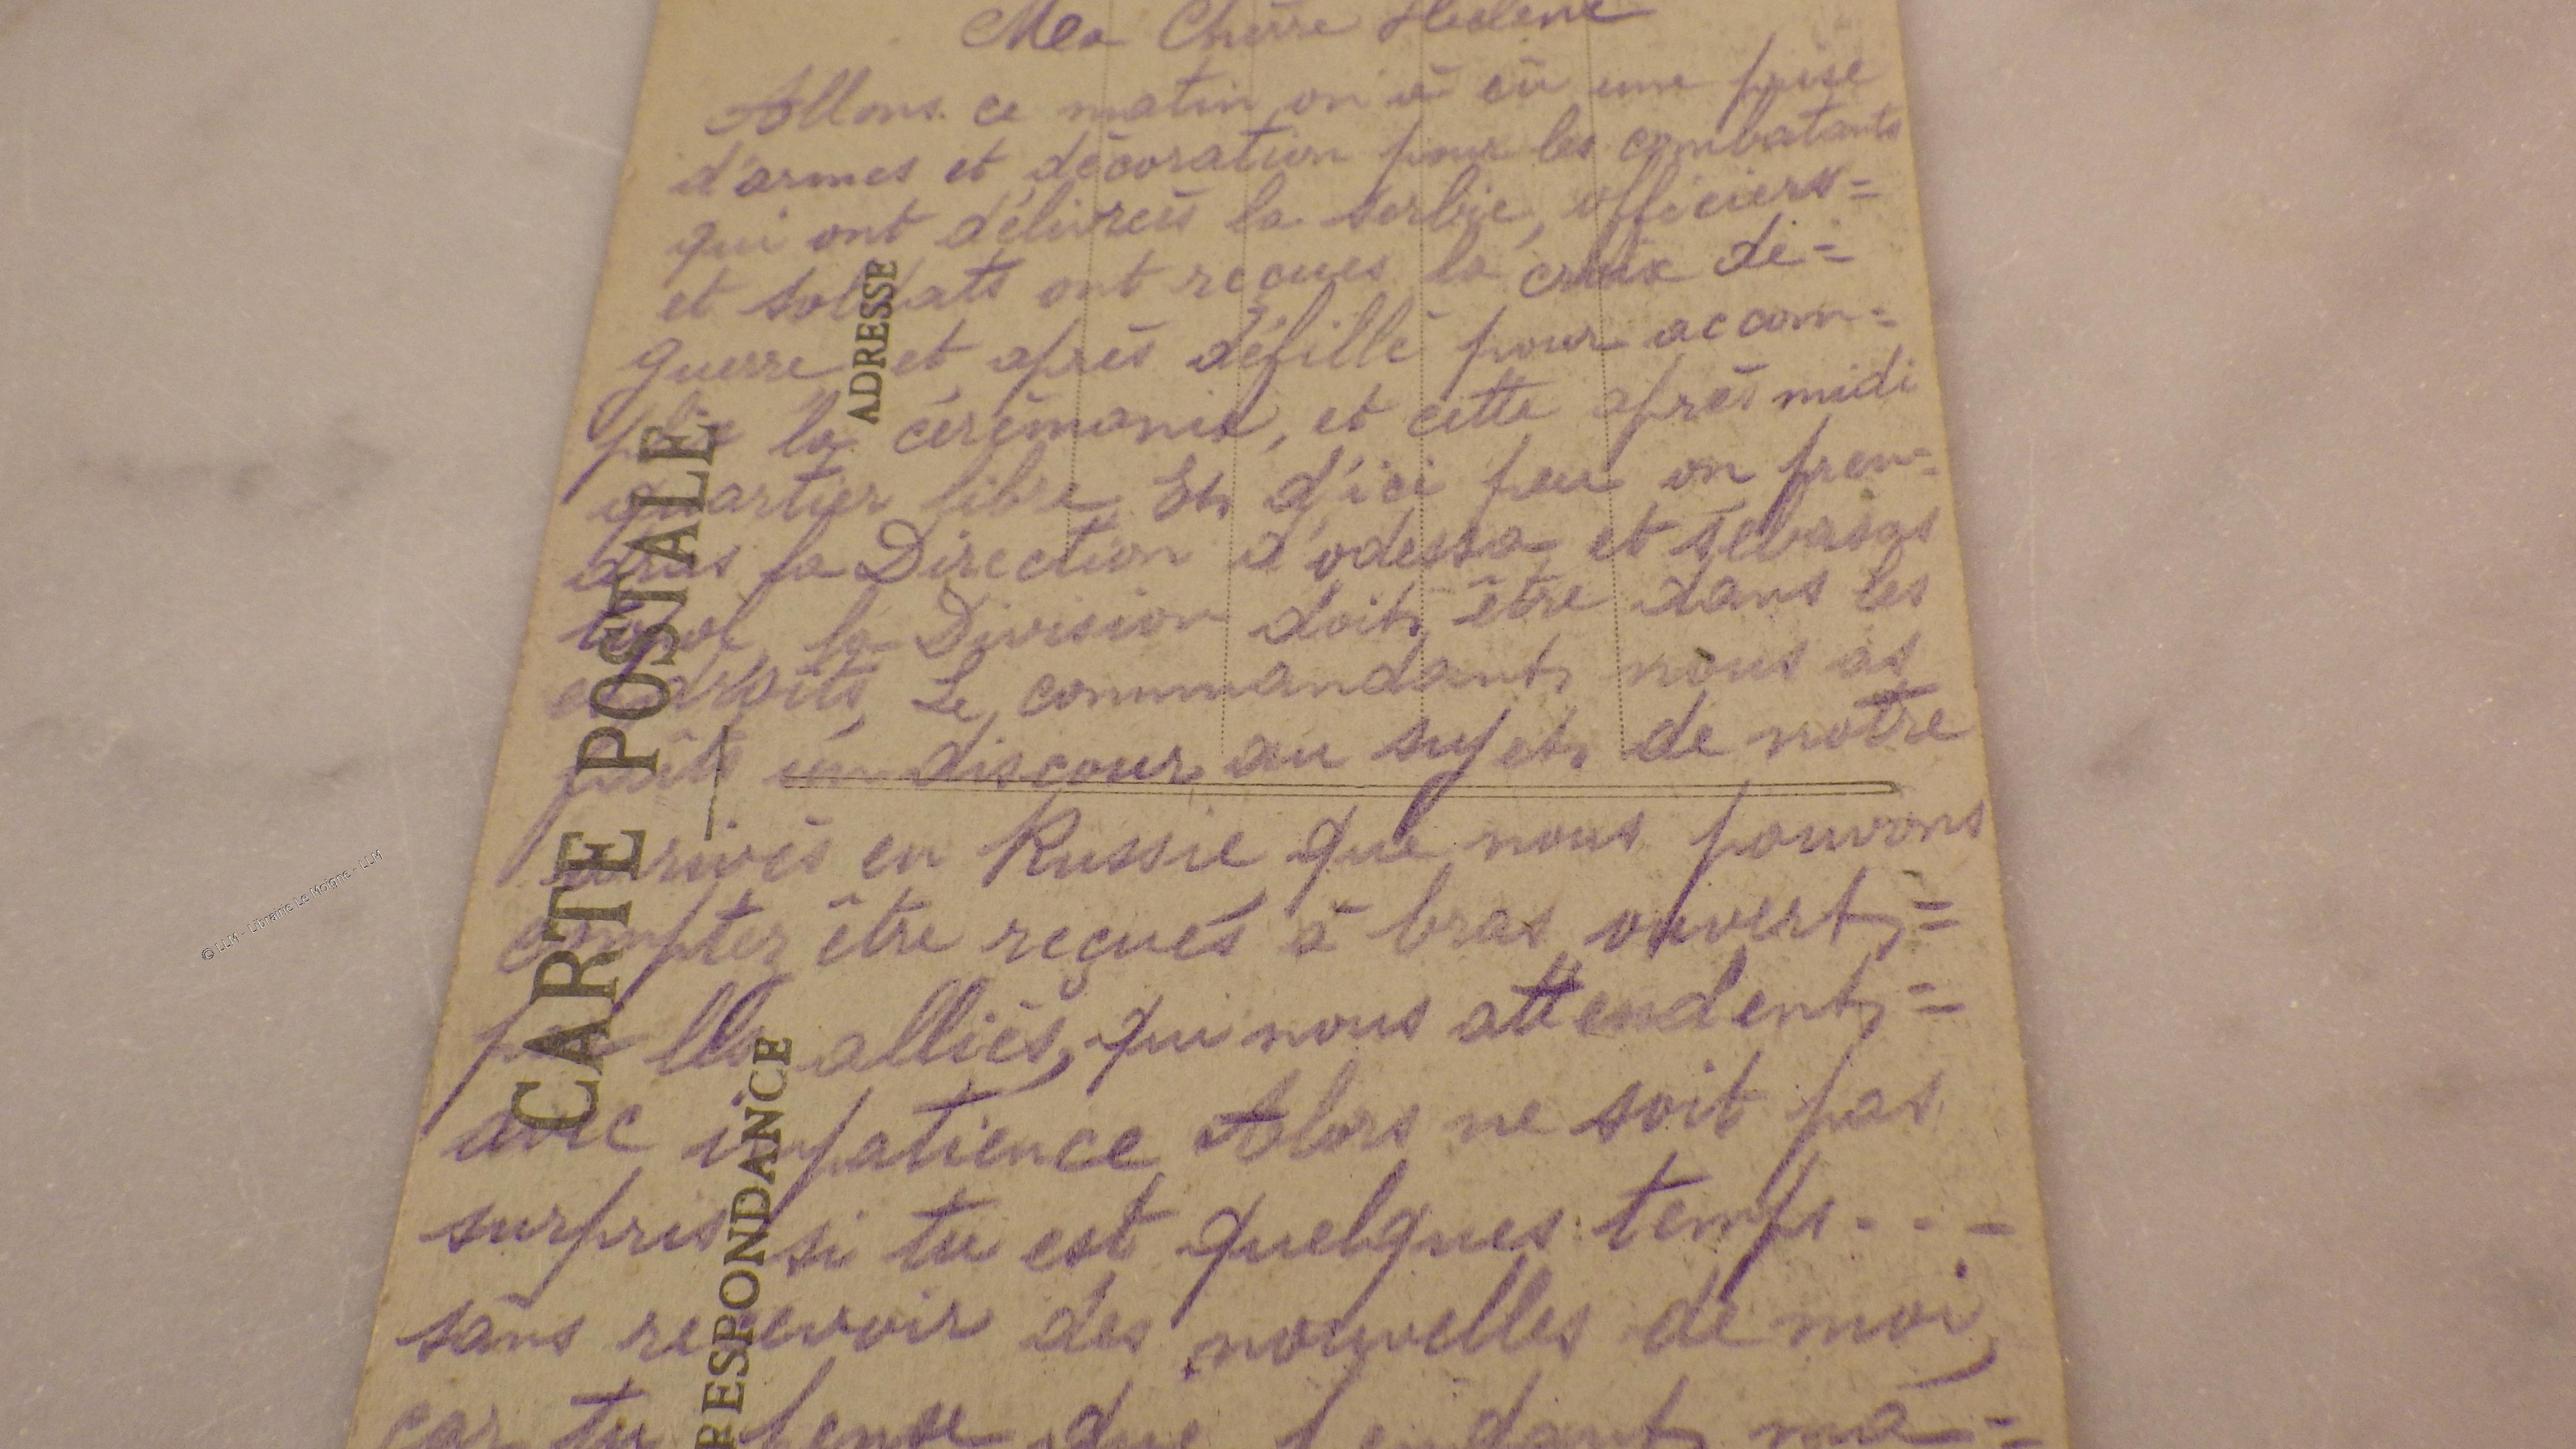 Ma Chèrre Hèlène
Allons ce matin on à eù une prise
d'armes et décoration pour les combatants
qui ont délivreés la serbie, officiers=
et soldats ont reçues la croix de=
guerre et après défillé pour accom=
plir la cérémonie, et cette après midi
quartier libre Et d'ici peu on pren=
dras la Direction d'odessa et sebasas
topol la Division doit être dans les
endroits, Le commandant nous as
faits un discour au sujet de notre
arrivés en Russie que nous pouvons
compter être reçués à bras ouvert=
par les alliés, qui nous attendent=
avec impatience Alors ne soit pas
surpris si tu est quelques temps - - -
sans recevoir des nouvelles de moi,
car tu pense que pendant ma=
CARTE POSTALE
ADRESSE
RESPONDANCE
© LLM - Librairie Le Moigne - LLM